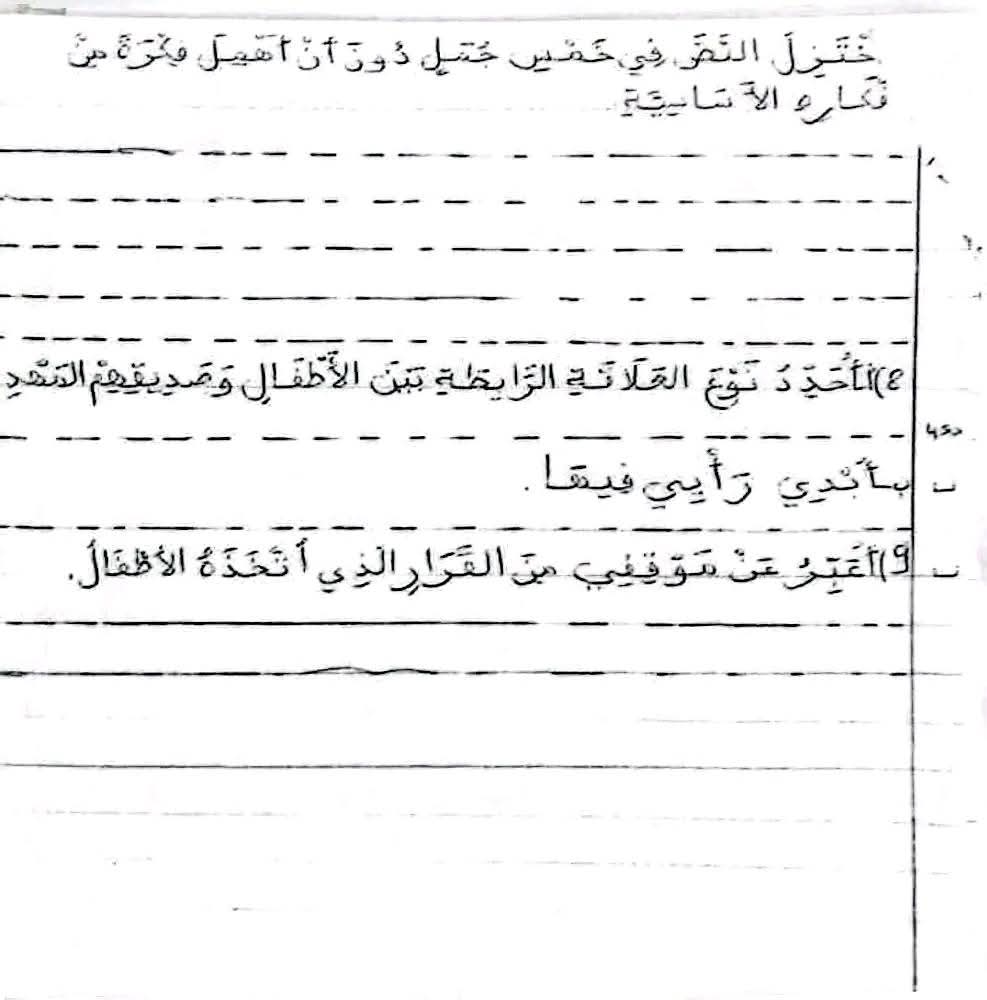 خْتَزِلُ النَّصَّ فِي خَمْسِ جُمَلٍ دُونَ أَنْ أُهْمِلَ فِكْرَةً مِنْ
فْكَارِهِ الأَسَاسِيَّةِ.
8)أأُحَدِّدُ نَوْعَ العَلَاقَةِ الرَّابِطَةِ بَيْنَ الأَطْفَالِ وَصَدِيقِهِمْ
ب أُبْدِي رَأْيِي فِيهَا.
9)أُعَبِّرُ عَنْ مَوْقِفِي مِنَ القَرَارِ الَّذِي اتَّخَذَهُ الأَطْفَالُ.